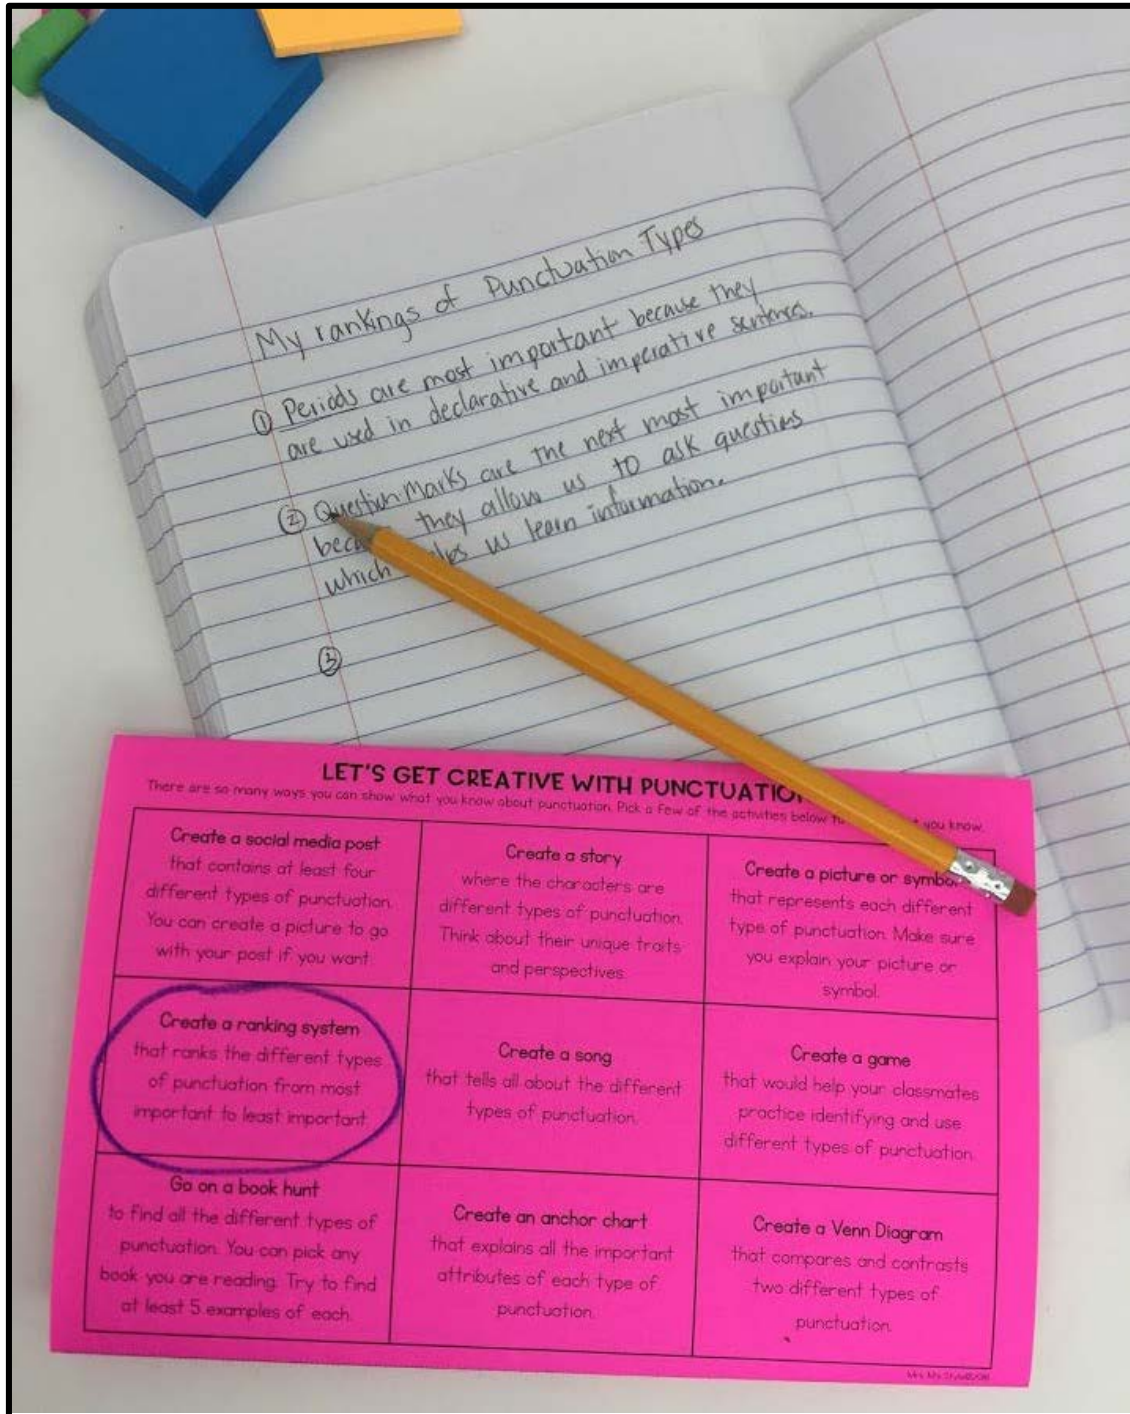 My rankings of Punctuation Types
① Periods are most important because they
are used in declarative and imperative sentences.
② Question Marks are the next most important
they allow us to ask questions
which us learn information.
③
LET'S GET CREATIVE WITH
There are so many ways you can show what you know about punctuation. Pick a few of the activities below you know.
Create a social media post
that contains at least four
different types of punctuation.
You can create a picture to go
with your post if you want.
Create a story
where the characters are
different types of punctuation.
Think about their unique traits
and perspectives.
Create a picture or
that represents each different
type of punctuation. Make sure
you explain your picture or
symbol.
Create a ranking system
that ranks the different types
of punctuation from most
important to least important.
Create a song
that tells all about the different
types of punctuation.
Create a game
that would help your classmates
practice identifying and use
different types of punctuation.
Go on a book hunt
to find all the different types of
punctuation. You can pick any
book you are reading. Try to find
at least 5 examples of each.
Create an anchor chart
that explains all the important
attributes of each type of
punctuation.
Create a Venn Diagram
that compares and contrasts
two different types of
punctuation.